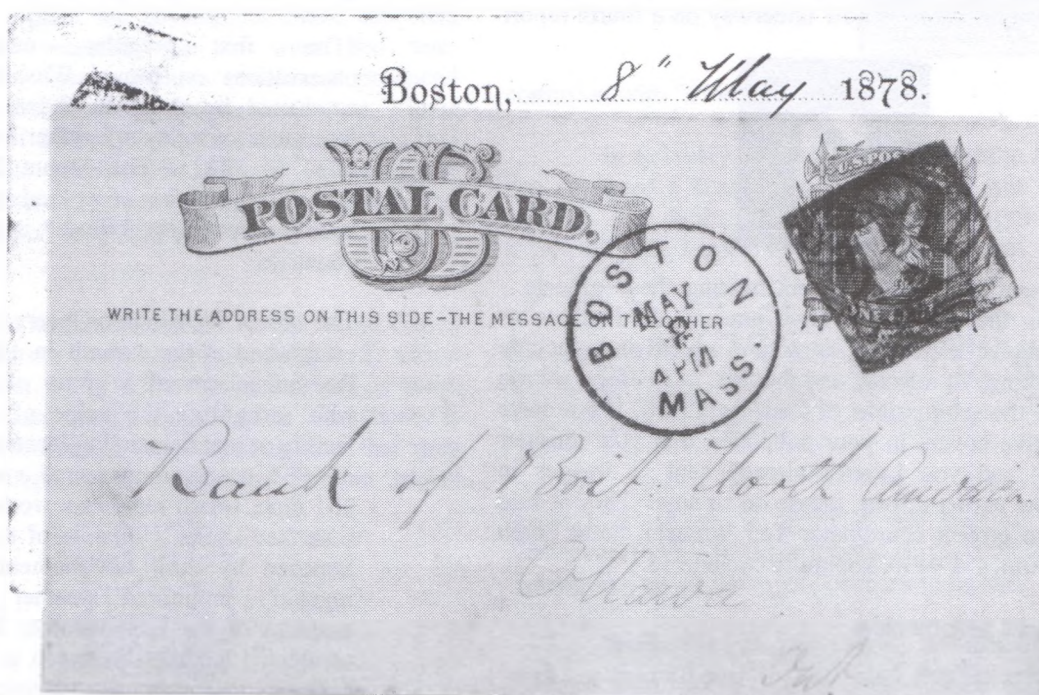 Boston, 8" May 1878.
US
POSTAL CARD.
U.S. POS
WRITE THE ADDRESS ON THIS SIDE-THE MESSAGE ON THE OTHER
BOSTON
MAY
8
4 PM
MASS.
Bank of Brit. North America
Ottawa
Ont